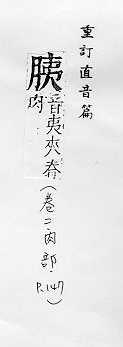 重訂直音篇
胰音夷夾脊
肉
(卷二·肉部·P.147)